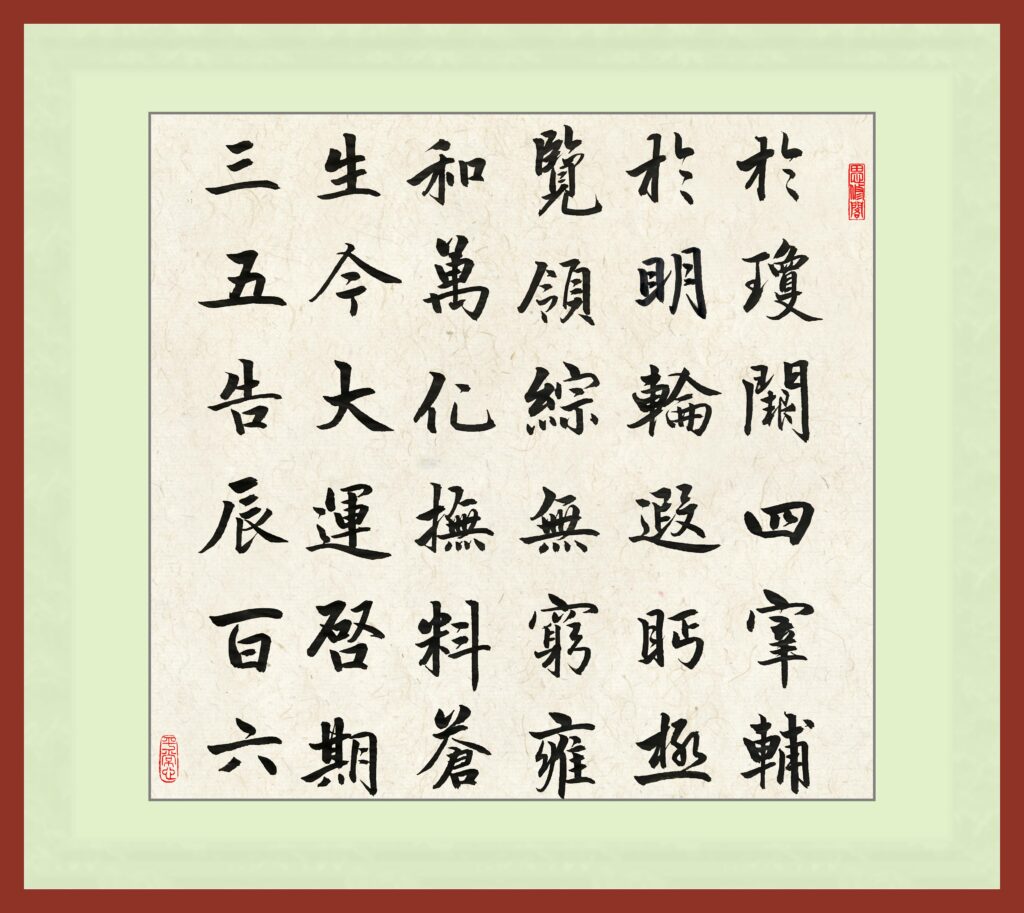 於瓊闕四宰輔
於明輪遐眄極
覽領綜無窮雍
和萬化撫料蒼
生今大運啓期
三五告辰百六